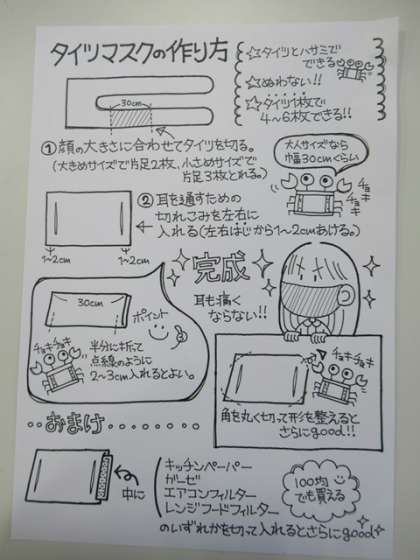 タイツマスクの作り方
☆タイツとハサミで
できる
☆ぬわない!!
☆タイツ1枚で
4~6枚できる!!
30cm
①顔の大きさに合わせてタイツを切る。
(大きめサイズで片足2枚、小さめサイズで
片足3枚とれる。)
大人サイズなら
幅30cmぐらい
チョキ
チョキ
②耳を通すための
切れこみを左右に
入れる(左右はじから1~2cmあける。)
1~2cm
1~2cm
30cm
ポイント
チョキチョキ
半分に折って
点線のように
2~3cm入れるとよい。
完成
耳も痛く
ならない!!
チョキチョキ
角を丸く切って形を整えると
さらにgood!!
・・おまけ・・・・・・・・
中に
キッチンペーパー
ガーゼ
エアコンフィルター
レンジフードフィルター
のいずれかを切って入れるとさらにgood
100均
でも買える